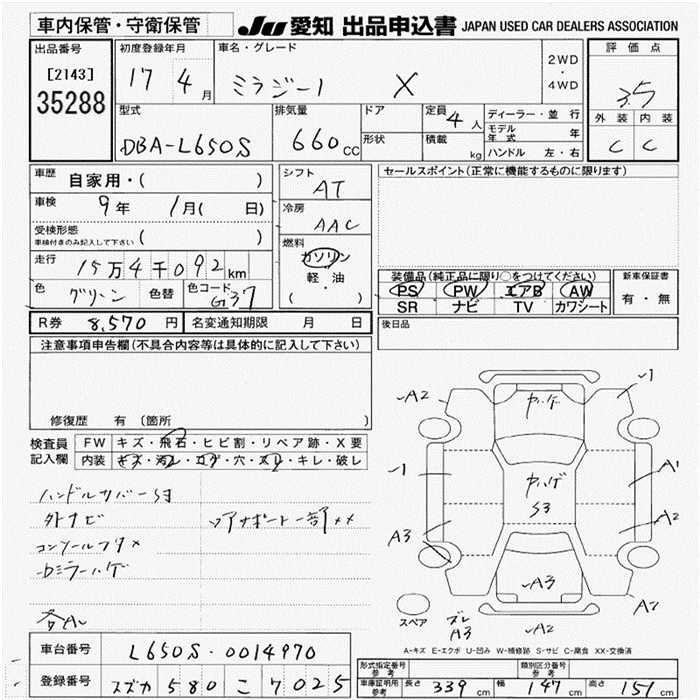 車内保管・守衛保管
JU 愛知 出品申込書 JAPAN USED CAR DEALERS ASSOCIATION
出品番号
[2143]
35288
初度登録年月
17 4月
車名・グレード
ミラジーノ X
2WD
・
4WD
評価点
3.5
外装 内装
C C
型式
DBA-L650S
排気量
660cc
ドア
形状
定員 4人
積載 kg
ディーラー・並行
モデル年式 年
ハンドル 左・右
車歴 自家用・( )
車検 9年 1月( 日)
受検形態
車検付きのみ記入して下さい ( )
走行 15万4千092km
色 グリーン 色替 色コード G37
シフト
AT
冷房
AAC
燃料
ガソリン
軽・油
( )
セールスポイント(正常に機能するものに限ります)
装備品(純正品に限り○をつけてください)
PS PW エアB AW
SR ナビ TV カワシート
新車保証書
有・無
R券 8,570円 名変通知期限 月 日
後日品
注意事項申告欄(不具合内容等は具体的に記入して下さい)
修復歴 有 (箇所
検査員記入欄
FW キズ・飛石・ヒビ割・リペア跡・X要
内装 キズ・汚レ・コゲ・穴・スレ・キレ・破レ
外ナビ
コンソールフタ×
各A
A2
1
ヤハゲ
1
ヤハゲ
S3
A1
A2
A3
A3
A2
スペア
ズレ
A3
A2
A-キズ E-エクボ U-凹み W-補修跡 S-サビ C-腐食 XX-交換済
車台番号 L650S-0014970
登録番号 スズカ 580 こ 7025
形式指定番号
参考
類別区分番号
参考
車庫証明用
参考
長さ 339cm 幅 147cm 高さ 151cm